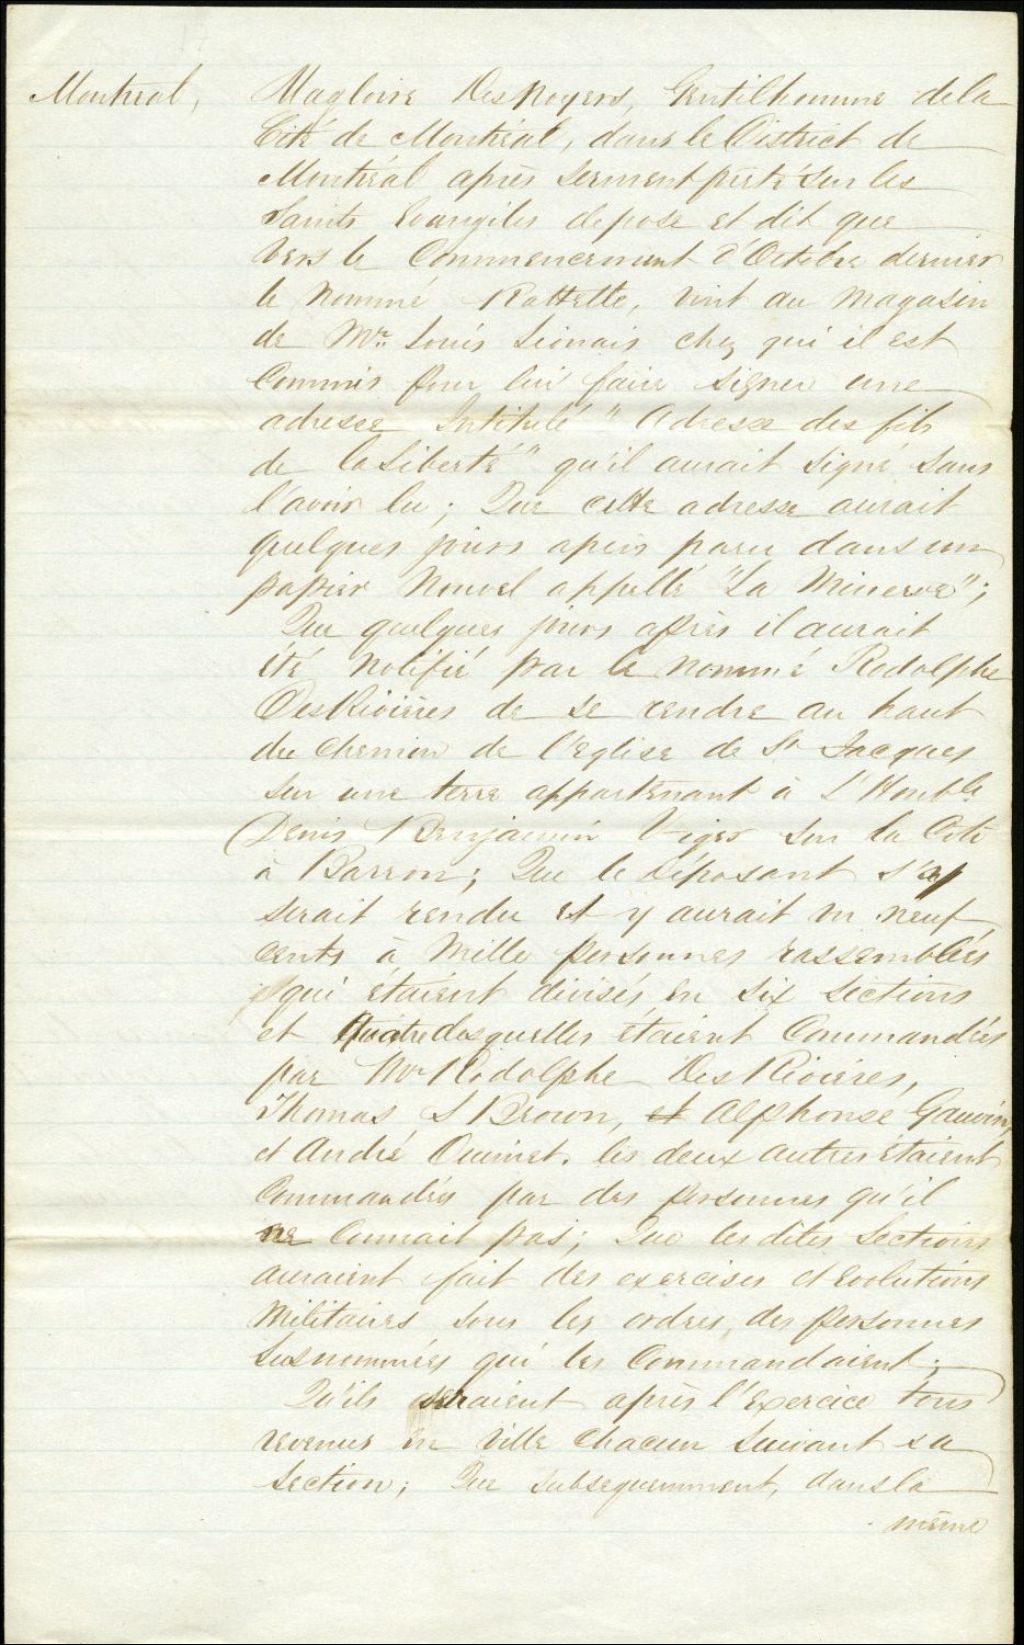 Montréal, Magloire DesNoyers, Gentilhomme de la
Cité de Montréal, dans le District de
Montréal après serment prété sur les
Saints Evangiles depose et dit que
vers le Commencement d'Octobre dernier
le Nommé Rottette, vint au Magasin
de Mr. Louis Lionais chez qui il est
Commis pour lui faire signer une
adresse Intitulé "Adresse des fils
de la Liberté" qu'il aurait signé sans
l'avoir lu; Que cette adresse aurait
quelques jours après paru dans un
papier Nouvel appellé "La Minerve";
Que quelques jours après il aurait
été Notifié par le Nommé Rodolphe
DesRivières de se rendre au haut
du Chemin de l'Eglise de St Jacques
sur une terre appartenant à L'Honble
Denis Benjamin Viger sur la Coté
à Barron; Que le Déposant s'y
serait rendu et y aurait vu neuf
cents à Mille personnes rassemblées
qui étaient divisés en six Sections
et Quatre desquelles étaient Commandées
par Mr Rodolphe DesRivières,
Thomas S Brown, et Alphonse Gauvin,
et André Ouimet. les deux autres étaient
Commandées par des personnes qu'il
ne Connait pas; Que les dites Sections
auraient fait des exercises et Evolutions
Militaires sous les ordres des personnes
Susnommées qui les Commandaient;
Qu'ils seraient après l'Exercice tous
revenus en Ville Chacun Suivant sa
Section; Que Subsequemment, dans la
même